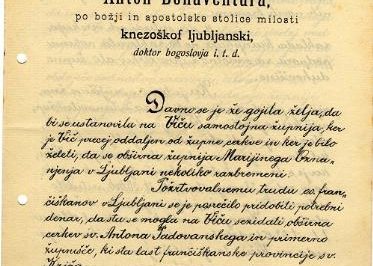 Anton Bonaventura,
po božji in apostolske stolice milosti
knezoškof ljubljanski,
doktor bogoslovja i. t. d.
Davno se je že gojila želja, da
bi se ustanovila na Viču samostojna župnija, ker
je Vič precej oddaljen od župne cerkve in ker je bilo
želeti, da se obširna župnija Marijinega Ozna=
njenja v Ljubljani nekoliko razbremeni.
Požrtvovalnemu trudu čč. fran=
čiškanov v Ljubljani se je posrečilo pridobiti potrebni
denar, da sta se mogla na Viču sezidati obširna
cerkev sv. Antona Padovanskega in primerno
župnišče, ki sta last frančiškanske provincije sv.
Križa